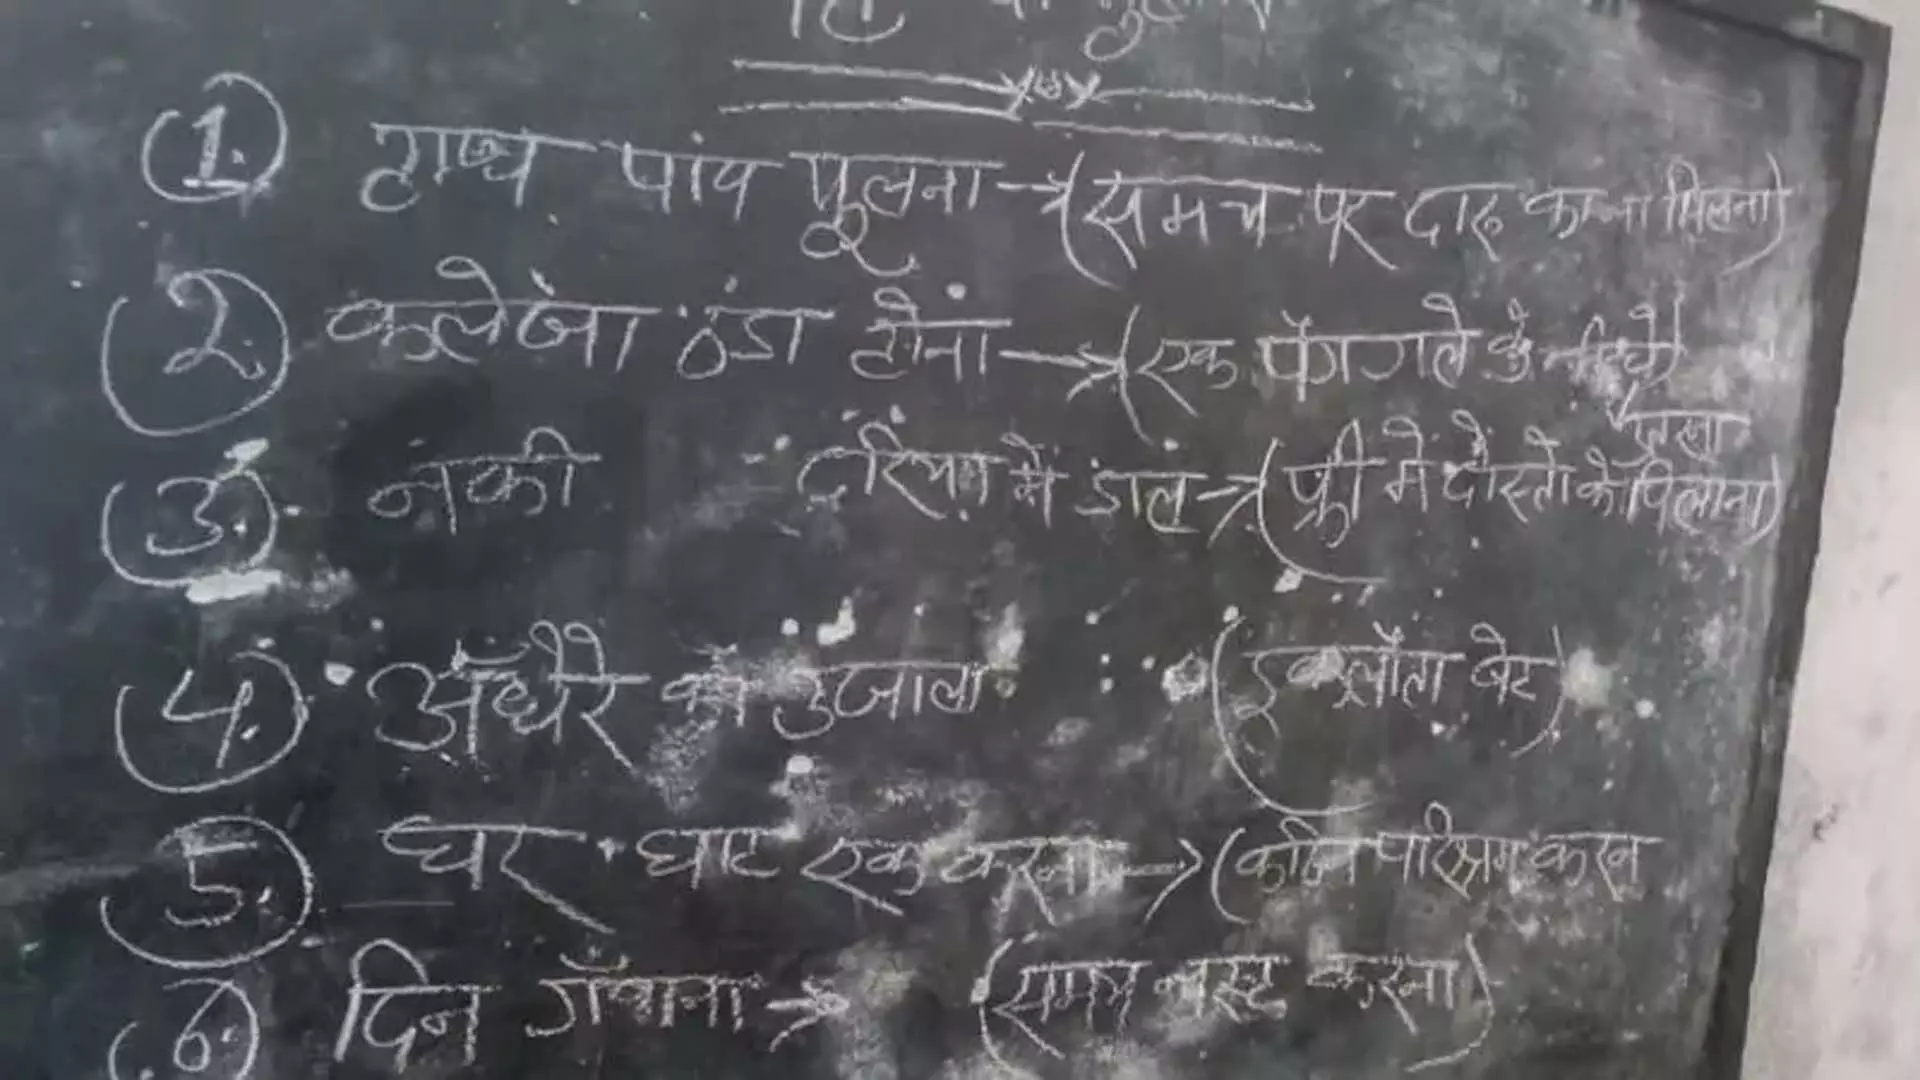 1. हाथ पांव फूलना → (समय पर दारू का ना मिलना)
2. कलेजा ठंडा होना → (एक पेग गले के नीचे
उतरना
3. नेकी दरिया में डाल → (फ्री में दोस्तो को पिलाना)
4. अँधेरे का उजाला (इकलौता बेटा)
5. घर घाट एक करना → (कठिन परिश्रम करना
6. दिन गँवाना → (समय नष्ट करना)